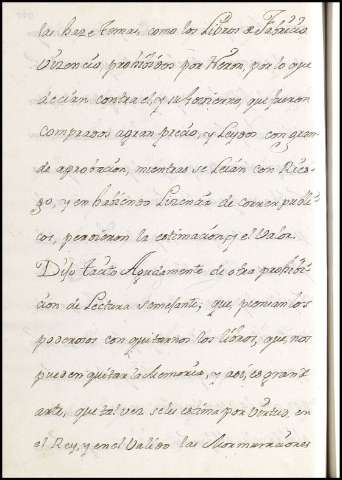 las haze Amar, como los Libros de Fabricio
Veiencio, prohividos por Neron, por lo que
decian contra el, y su Govierno, que fueron
comprados a gran precio, y Leydos con gran-
de aprovacion, mientras se Leian con Ries-
go, y en haviendo Lizencia de correr publi-
cos, perdieron la estimacion, y el Valor.
Dijo Tacito Agudamente de otra prohivi-
cion de Lectura semejante; que, piensan los
poderosos con quitarnos los libros, que nos
pueden quitar la Memoria, y assi, es grande
arte, que tal vez se les estima por Virtud, en
el Rey, y en el Valido las Mormuraciones